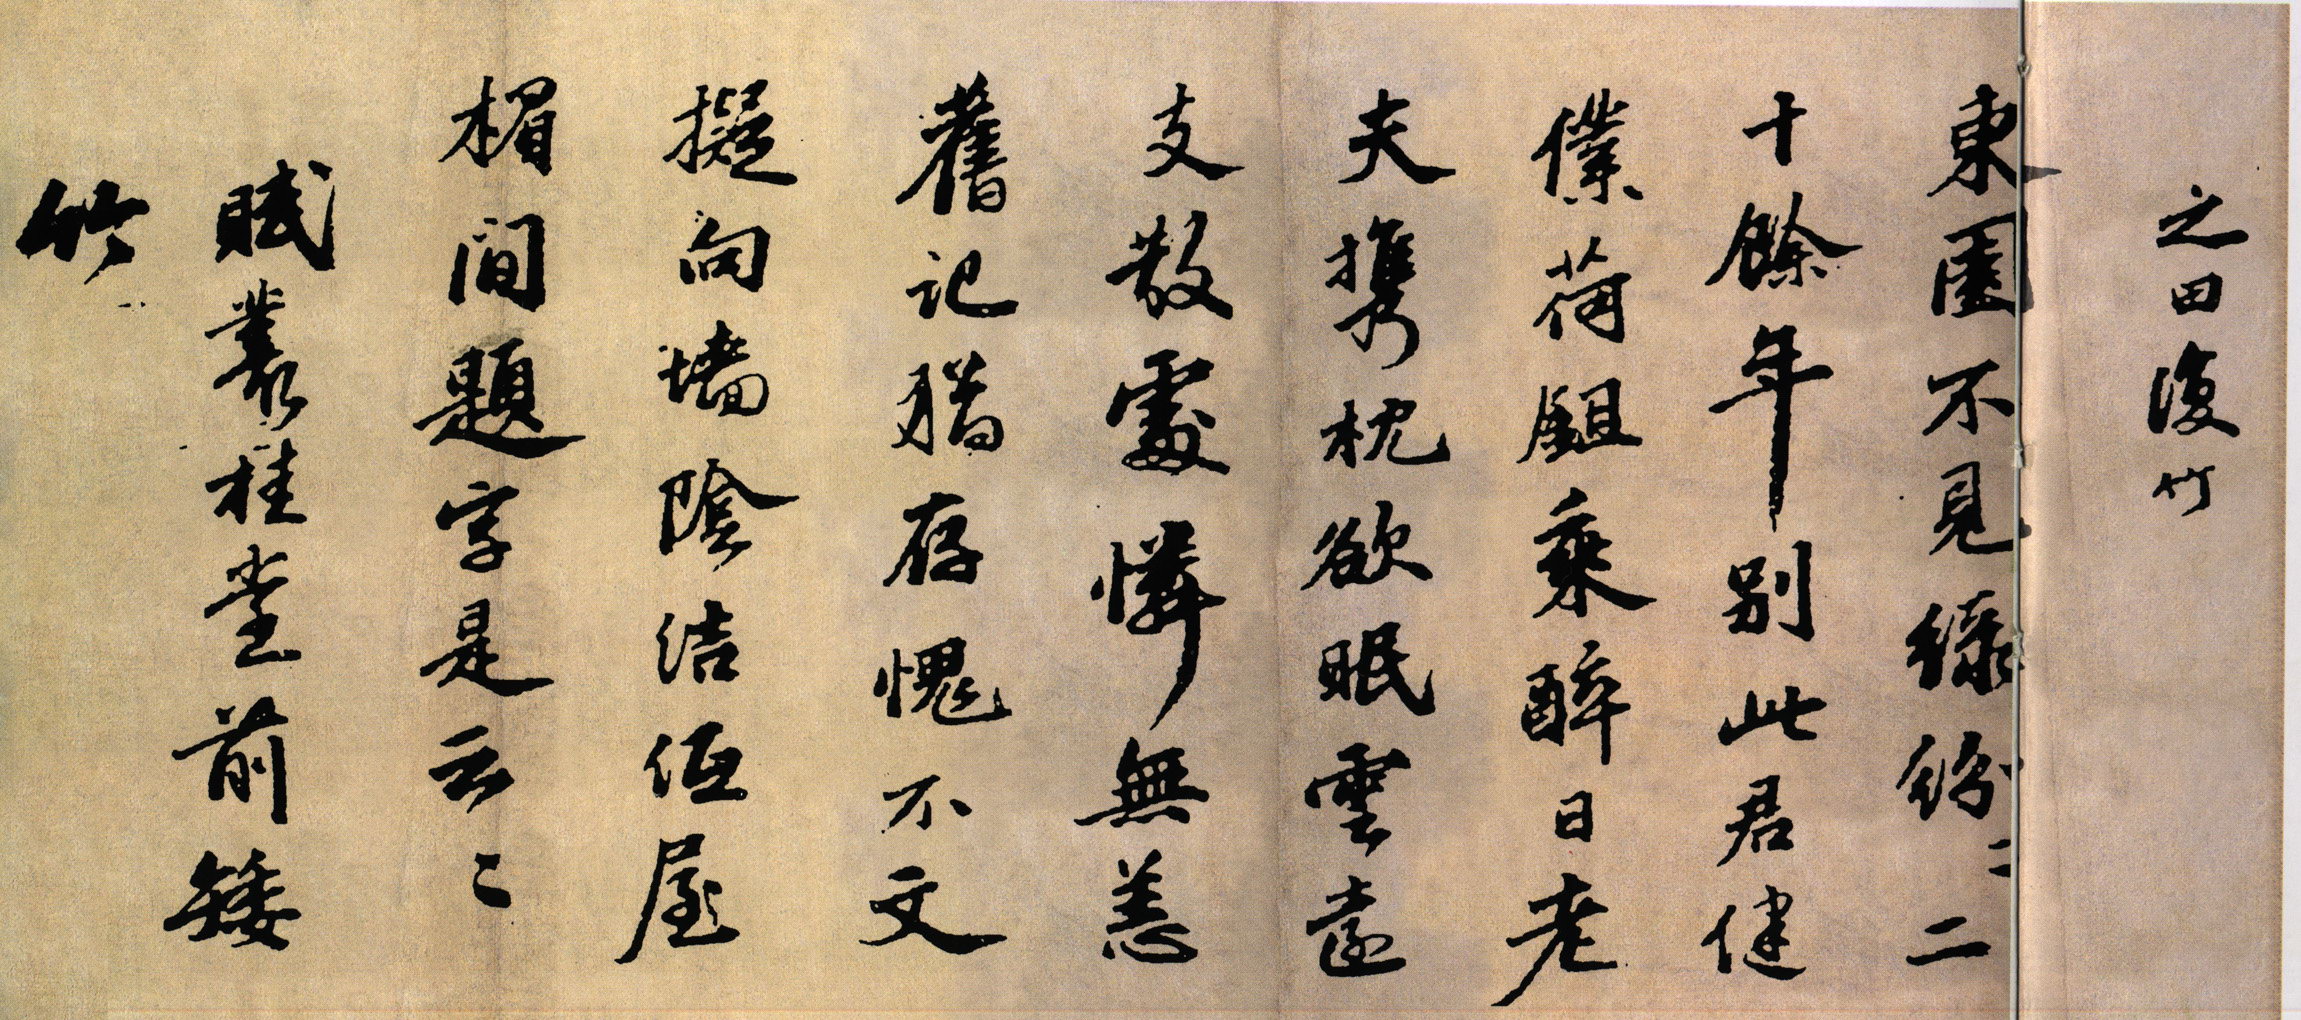 之田復竹
東園不見綠紛〻二
十餘年別此君健
僕荷鉏乘醉日老
夫攜枕欲眠雲遠
支散處憐無恙
舊記猶存愧不文
擬向墻陰結低屋
楣間題字是云〻
賦叢桂堂前矮
竹